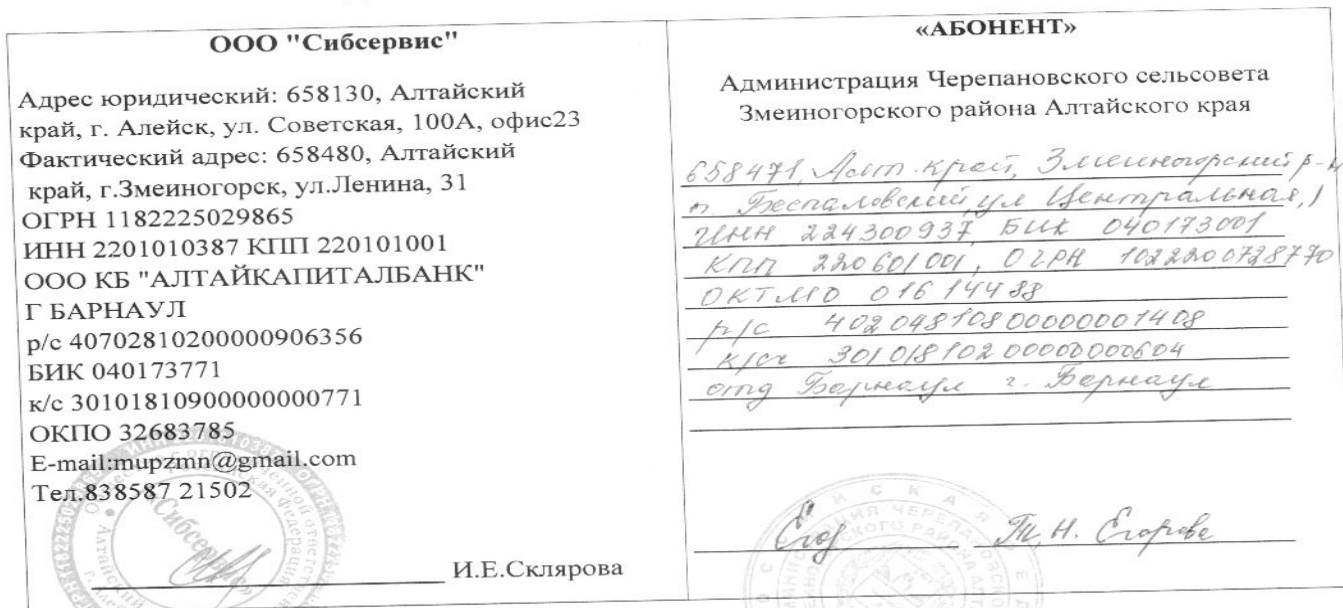 ООО "Сибсервис"
Адрес юридический: 658130, Алтайский
край, г. Алейск, ул. Советская, 100А, офис23
Фактический адрес: 658480, Алтайский
край, г.Змеиногорск, ул.Ленина, 31
ОГРН 1182225029865
ИНН 2201010387 КПП 220101001
ООО КБ "АЛТАЙКАПИТАЛБАНК"
Г БАРНАУЛ
р/с 40702810200000906356
БИК 040173771
к/с 30101810900000000771
ОКПО 32683785
E-mail:mupzmn@gmail.com
Тел.838587 21502
«Сибсервис»
И.Е.Склярова
«АБОНЕНТ»
Администрация Черепановского сельсовета
Змеиногорского района Алтайского края
658471, Алт. край, Змеиногорский р-н
п Беспаловский, ул Центральная, 1
ИНН 224300937 БИК 040173001
КПП 220601001, ОГРН 1022200728770
ОКТМО 01614488
р/с 40204810800000001408
к/сч 30101810200000000604
отд Барнаул г. Барнаул
Т.Н. Егорова